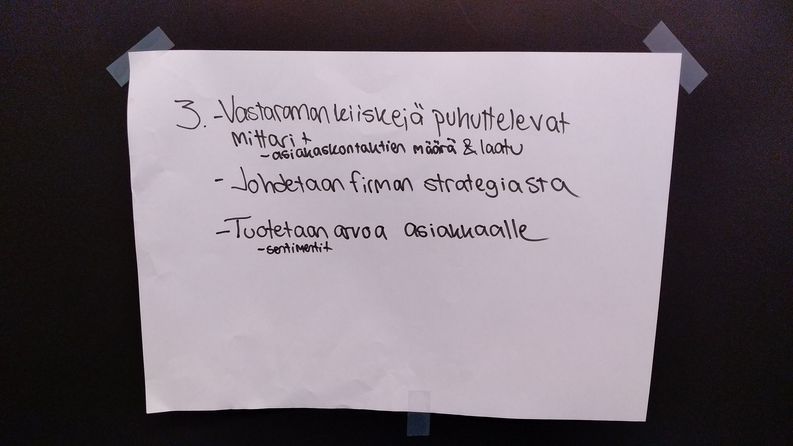 3. -Vastarannan kiiskejä puhuttelevat
mittarit
-asiakaskontaktien määrä & laatu
- Johdetaan firman strategiasta
-Tuotetaan arvoa asiakkaalle
-sentimentit